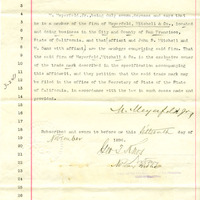 M. Meyerfeld, Jr., being duly sworn, deposes and says that
he is a member of the firm of Meyerfeld, Mitchell & Co., located
and doing business in the City and County of San Francisco,
State of California, and that affiant and John H. Mitchell and
are the members comprising said firm. That
the said firm of Meyerfeld, Mitchell & Co. is the exclusive owner
of the trade mark described in the specification accompanying
this affidavit, and they petition that the said trade mark may
be filed in the office of the Secretary of State of the State
of California, in accordance with the law in such cases made and
provided.
M. Meyerfeld Jr.
Subscribed and sworn to before me this day of
November
Geo. T. Knox
Notary Public